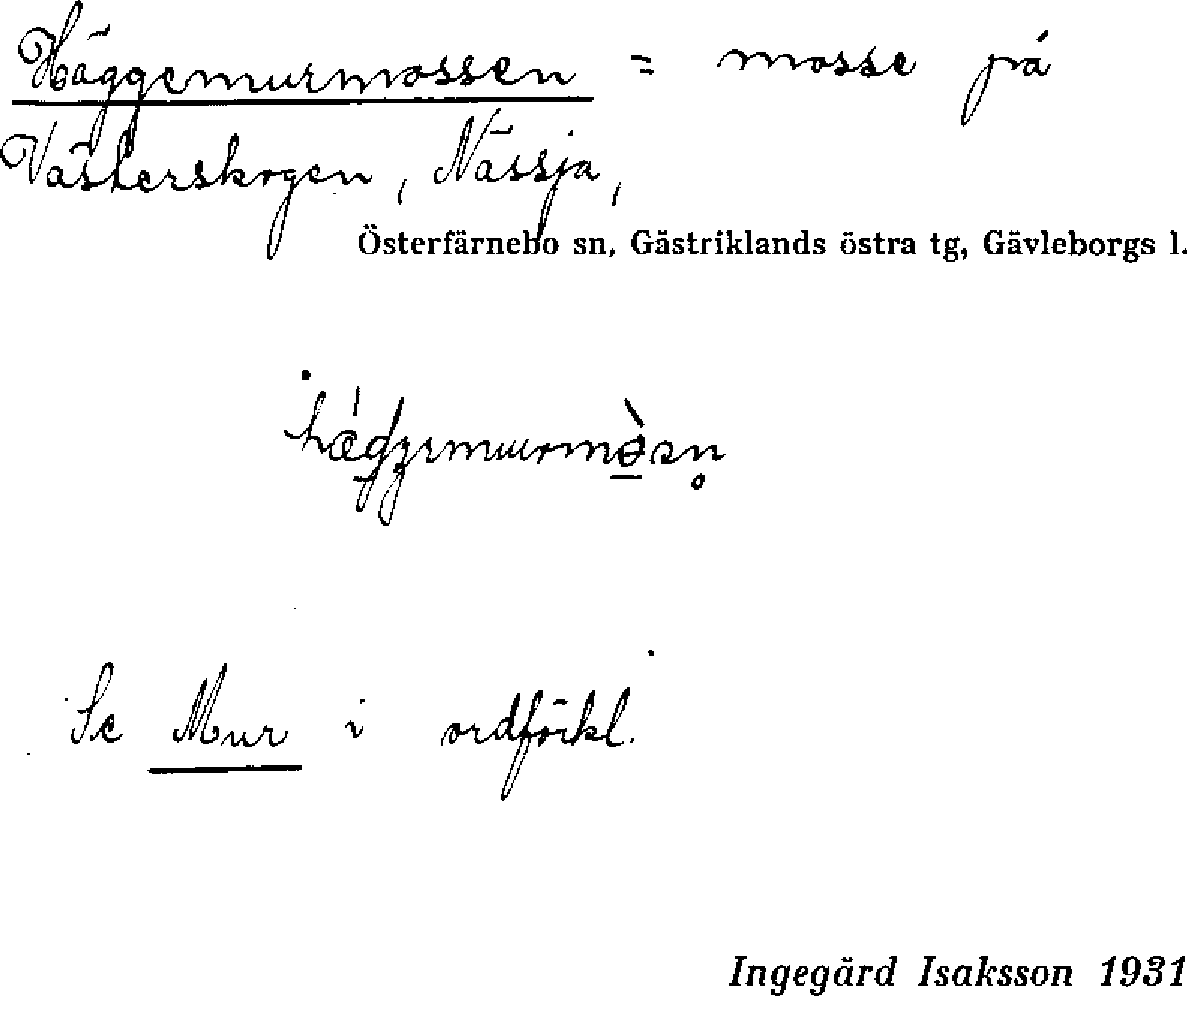 Häggemurmossen = mosse på
Västerskogen, Nässja,
Österfärnebo sn, Gästriklands östra tg, Gävleborgs l.
Se Mur i ordförkl.
Ingegärd Isaksson 1931